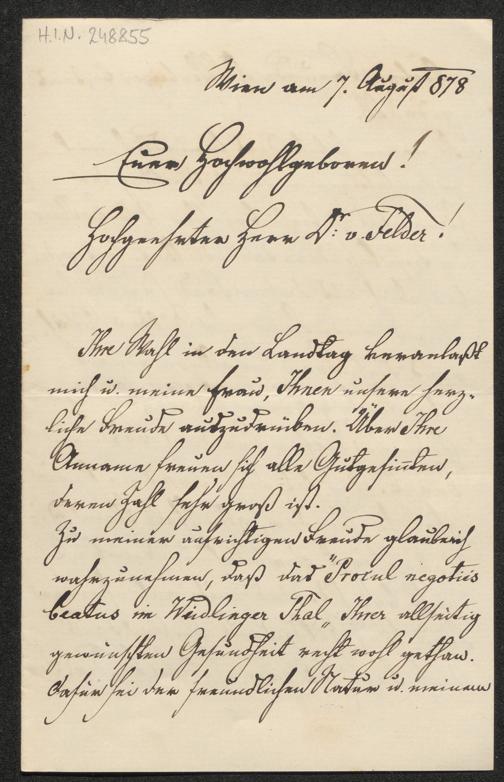 H.I.N. 248855
Wien am 7. August 878
Euer Hochwohlgeboren!
Hochgeehrter Herr Dr: v. Felder!
Ihre Wahl in den Landtag veranlaßt
mich u. meine Frau, Ihnen unsere herz-
liche Freude auszudrücken. Über Ihre
Anname freuen sich alle Gutgesinnten,
deren Zahl sehr groß ist.
Zu meiner aufrichtigen Freude glaube ich
wahrzunehmen, daß das "Procul negotiis
beatus im Weidlinger Thal" Ihrer allseitig
gewünschten Gesundheit recht wohl gethan.
Dafür sei der freundlichen Natur u. meinem